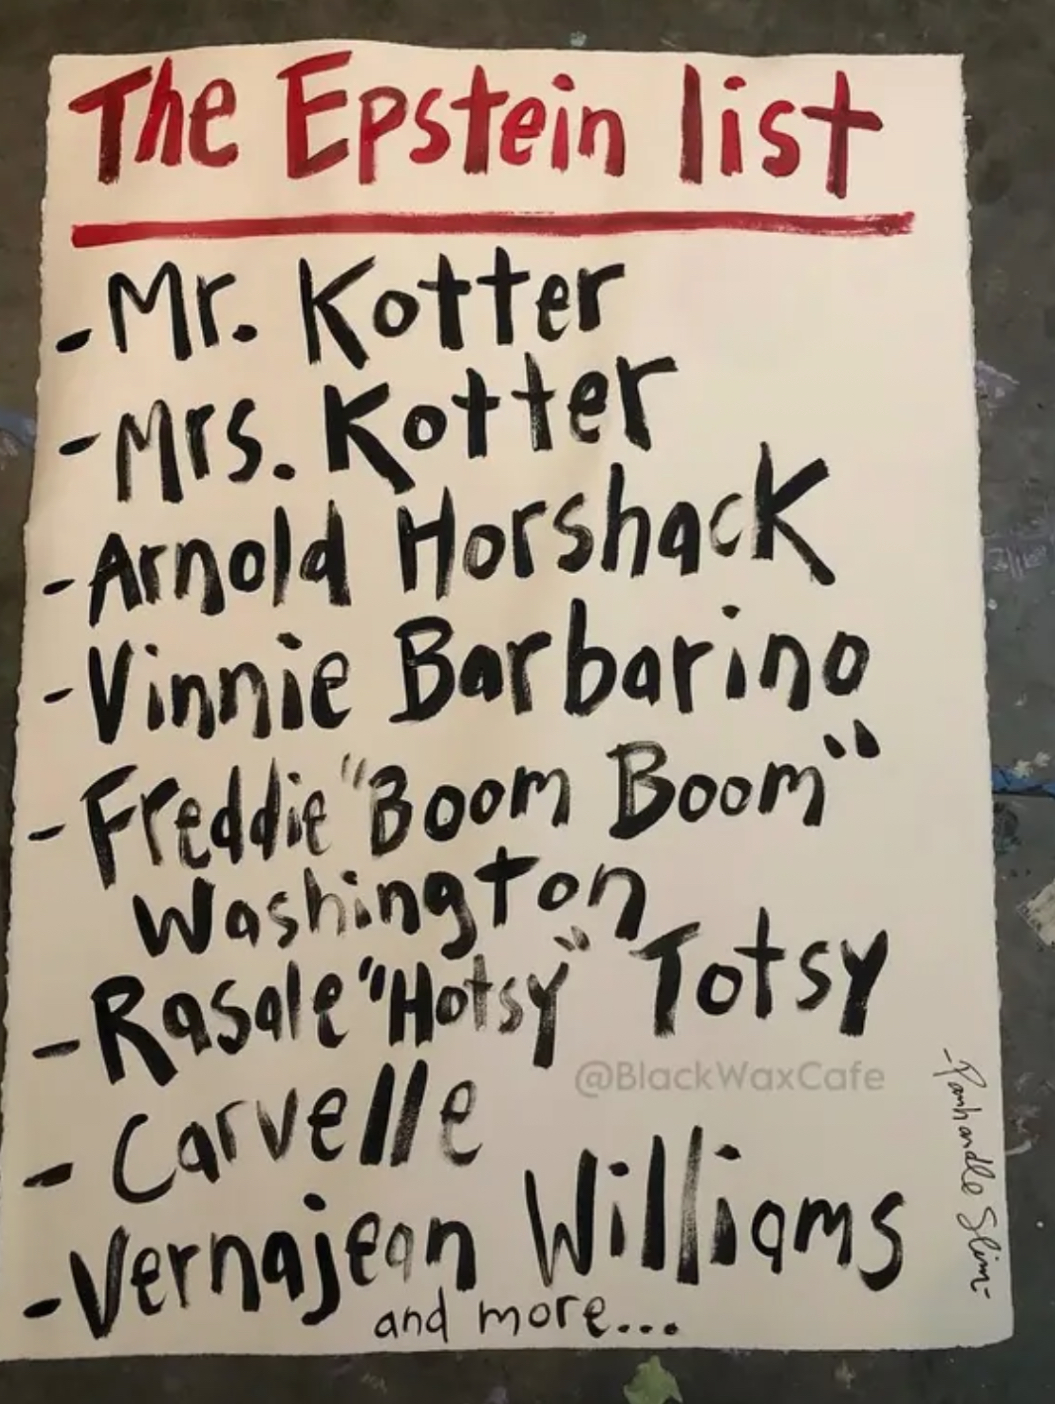 The Epstein list
-Mr. Kotter
-Mrs. Kotter
-Arnold Horshack
-Vinnie Barbarino
-Freddie "Boom Boom"
Washington
-Rasale "Hotsy" Totsy
@BlackWaxCafe
-Carvelle
-Vernajean Williams
and more...
-Panhandle Slim-